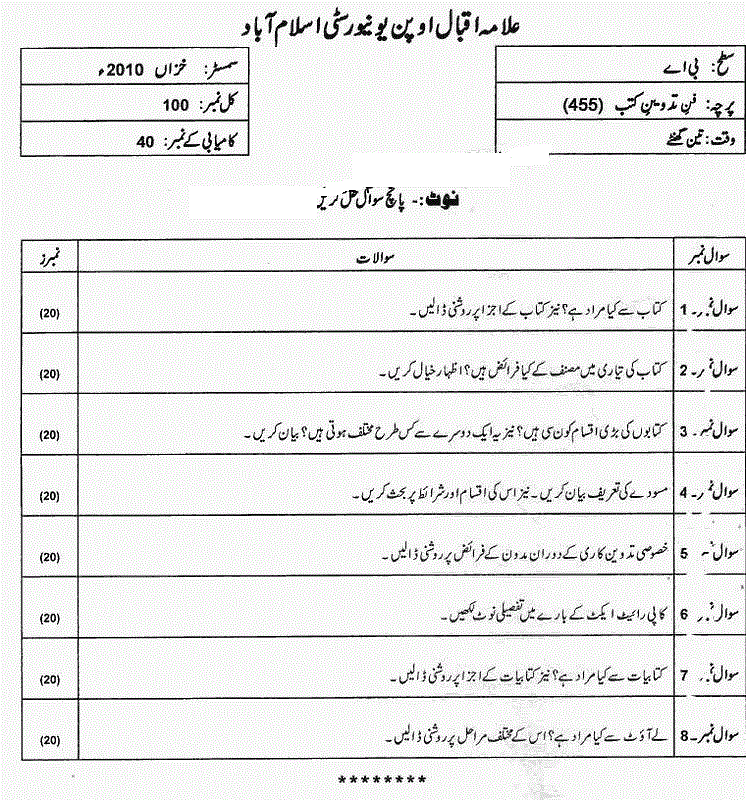 علامہ اقبال اوپن یونیورسٹی اسلام آباد
سطح: بی اے
سمسٹر: خزاں 2010ء
پرچہ: فنِ تدوینِ کتب (455)
کل نمبر: 100
وقت: تین گھنٹے
کامیابی کے نمبر: 40
نوٹ:- پانچ سوال حل کریں
سوال نمبر سوالات نمبرز
سوال نمبر۔ 1 کتاب سے کیا مراد ہے؟ نیز کتاب کے اجزا پر روشنی ڈالیں۔ (20)
سوال نمبر۔ 2 کتاب کی تیاری میں مصنف کے کیا فرائض ہیں؟ اظہار خیال کریں۔ (20)
سوال نمبر۔ 3 کتابوں کی بڑی اقسام کون سی ہیں؟ نیز یہ ایک دوسرے سے کس طرح مختلف ہوتی ہیں؟ بیان کریں۔ (20)
سوال نمبر۔ 4 مسودے کی تعریف بیان کریں۔ نیز اس کی اقسام اور شرائط پر بحث کریں۔ (20)
سوال 5 خصوصی تدوین کاری کے دوران مدون کے فرائض پر روشنی ڈالیں۔ (20)
سوال نمبر 6 کاپی رائیٹ ایکٹ کے بارے میں تفصیلی نوٹ لکھیں۔ (20)
سوال نمبر 7 کتابیات سے کیا مراد ہے؟ نیز کتابیات کے اجزا پر روشنی ڈالیں۔ (20)
سوال نمبر۔ 8 لے آؤٹ سے کیا مراد ہے؟ اس کے مختلف مراحل پر روشنی ڈالیں۔ (20)
********